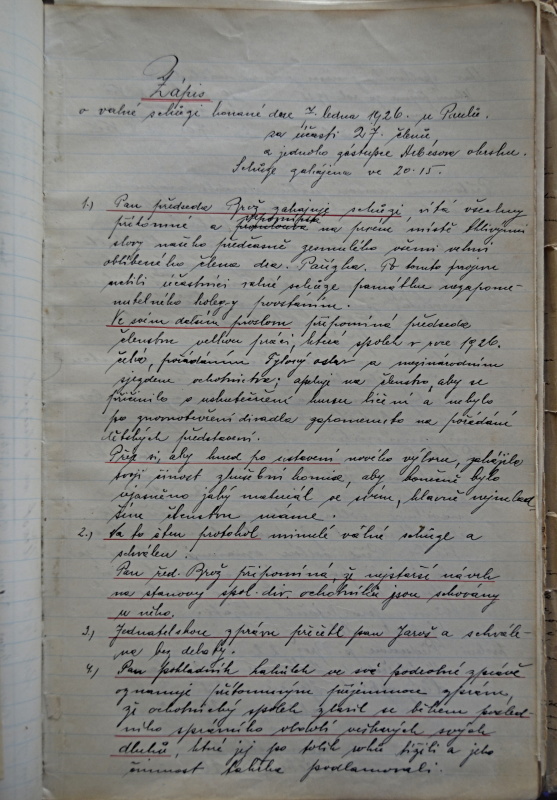 Zápis
o valné schůzi konané dne 7. ledna 1926. u Pavlů.
za účasti 27. členů,
a jednoho zástupce Arbesova okrsku.
Schůze zahájena ve 20.15.
1.) Pan předseda Brož zahajuje schůzi, vítá všechny
přítomné a vzpomíná na prvém místě
slovy našeho předčasně zesnulého všemi velmi
oblíbeného člena dra. Po tomto projevu
uctili účastníci valné schůze památku nezapome-
nutelného kolegy povstáním.
Ve svém dalším proslovu připomíná předseda
členstvu velkou práci, která spolek v roce 1926.
čeká, pořádáním Tylových oslav a mezinárodním
sjezdem ochotnictva; apeluje na členstvo, aby se
přičinilo o uskutečnění kursu líčení a nebylo
po znovuotevření divadla zapomenuto na pořádání
dětských představení.
Přeje si, aby hned po ustavení nového výboru, zahájila
svoji činnost zkušební komise, aby konečně bylo
vyjasněno jaký materiál ve svém, hlavně nejmlad-
ším členstvu máme.
2.) Na to čten protokol minulé valné schůze a
schválen.
Pan řed. Brož připomíná, že nejstarší návrh
na stanovy spol. div. ochotníků jsou schovany
u něho.
3.) Jednatelskou zprávu přečetl pan Jaroš a schvále-
na bez debaty.
4.) Pan pokladník ve své podrobné zprávě
oznamuje přítomným příjemnou zprávu,
že ochotnický spolek zbavil se během posled-
ního správního období veškerých svých
dluhů, které jej po tolik roků tížili a jeho
činnost takřka podlamovali.